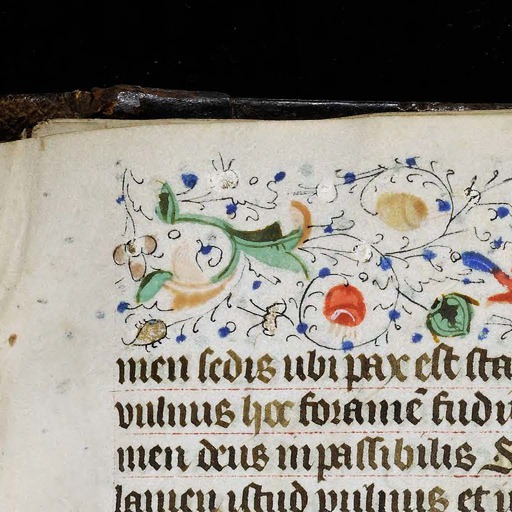 men sedis ubi pax est sta
vulnus hoc foramē fudi
men deus inpassibilis S
lamen istud vulnus et